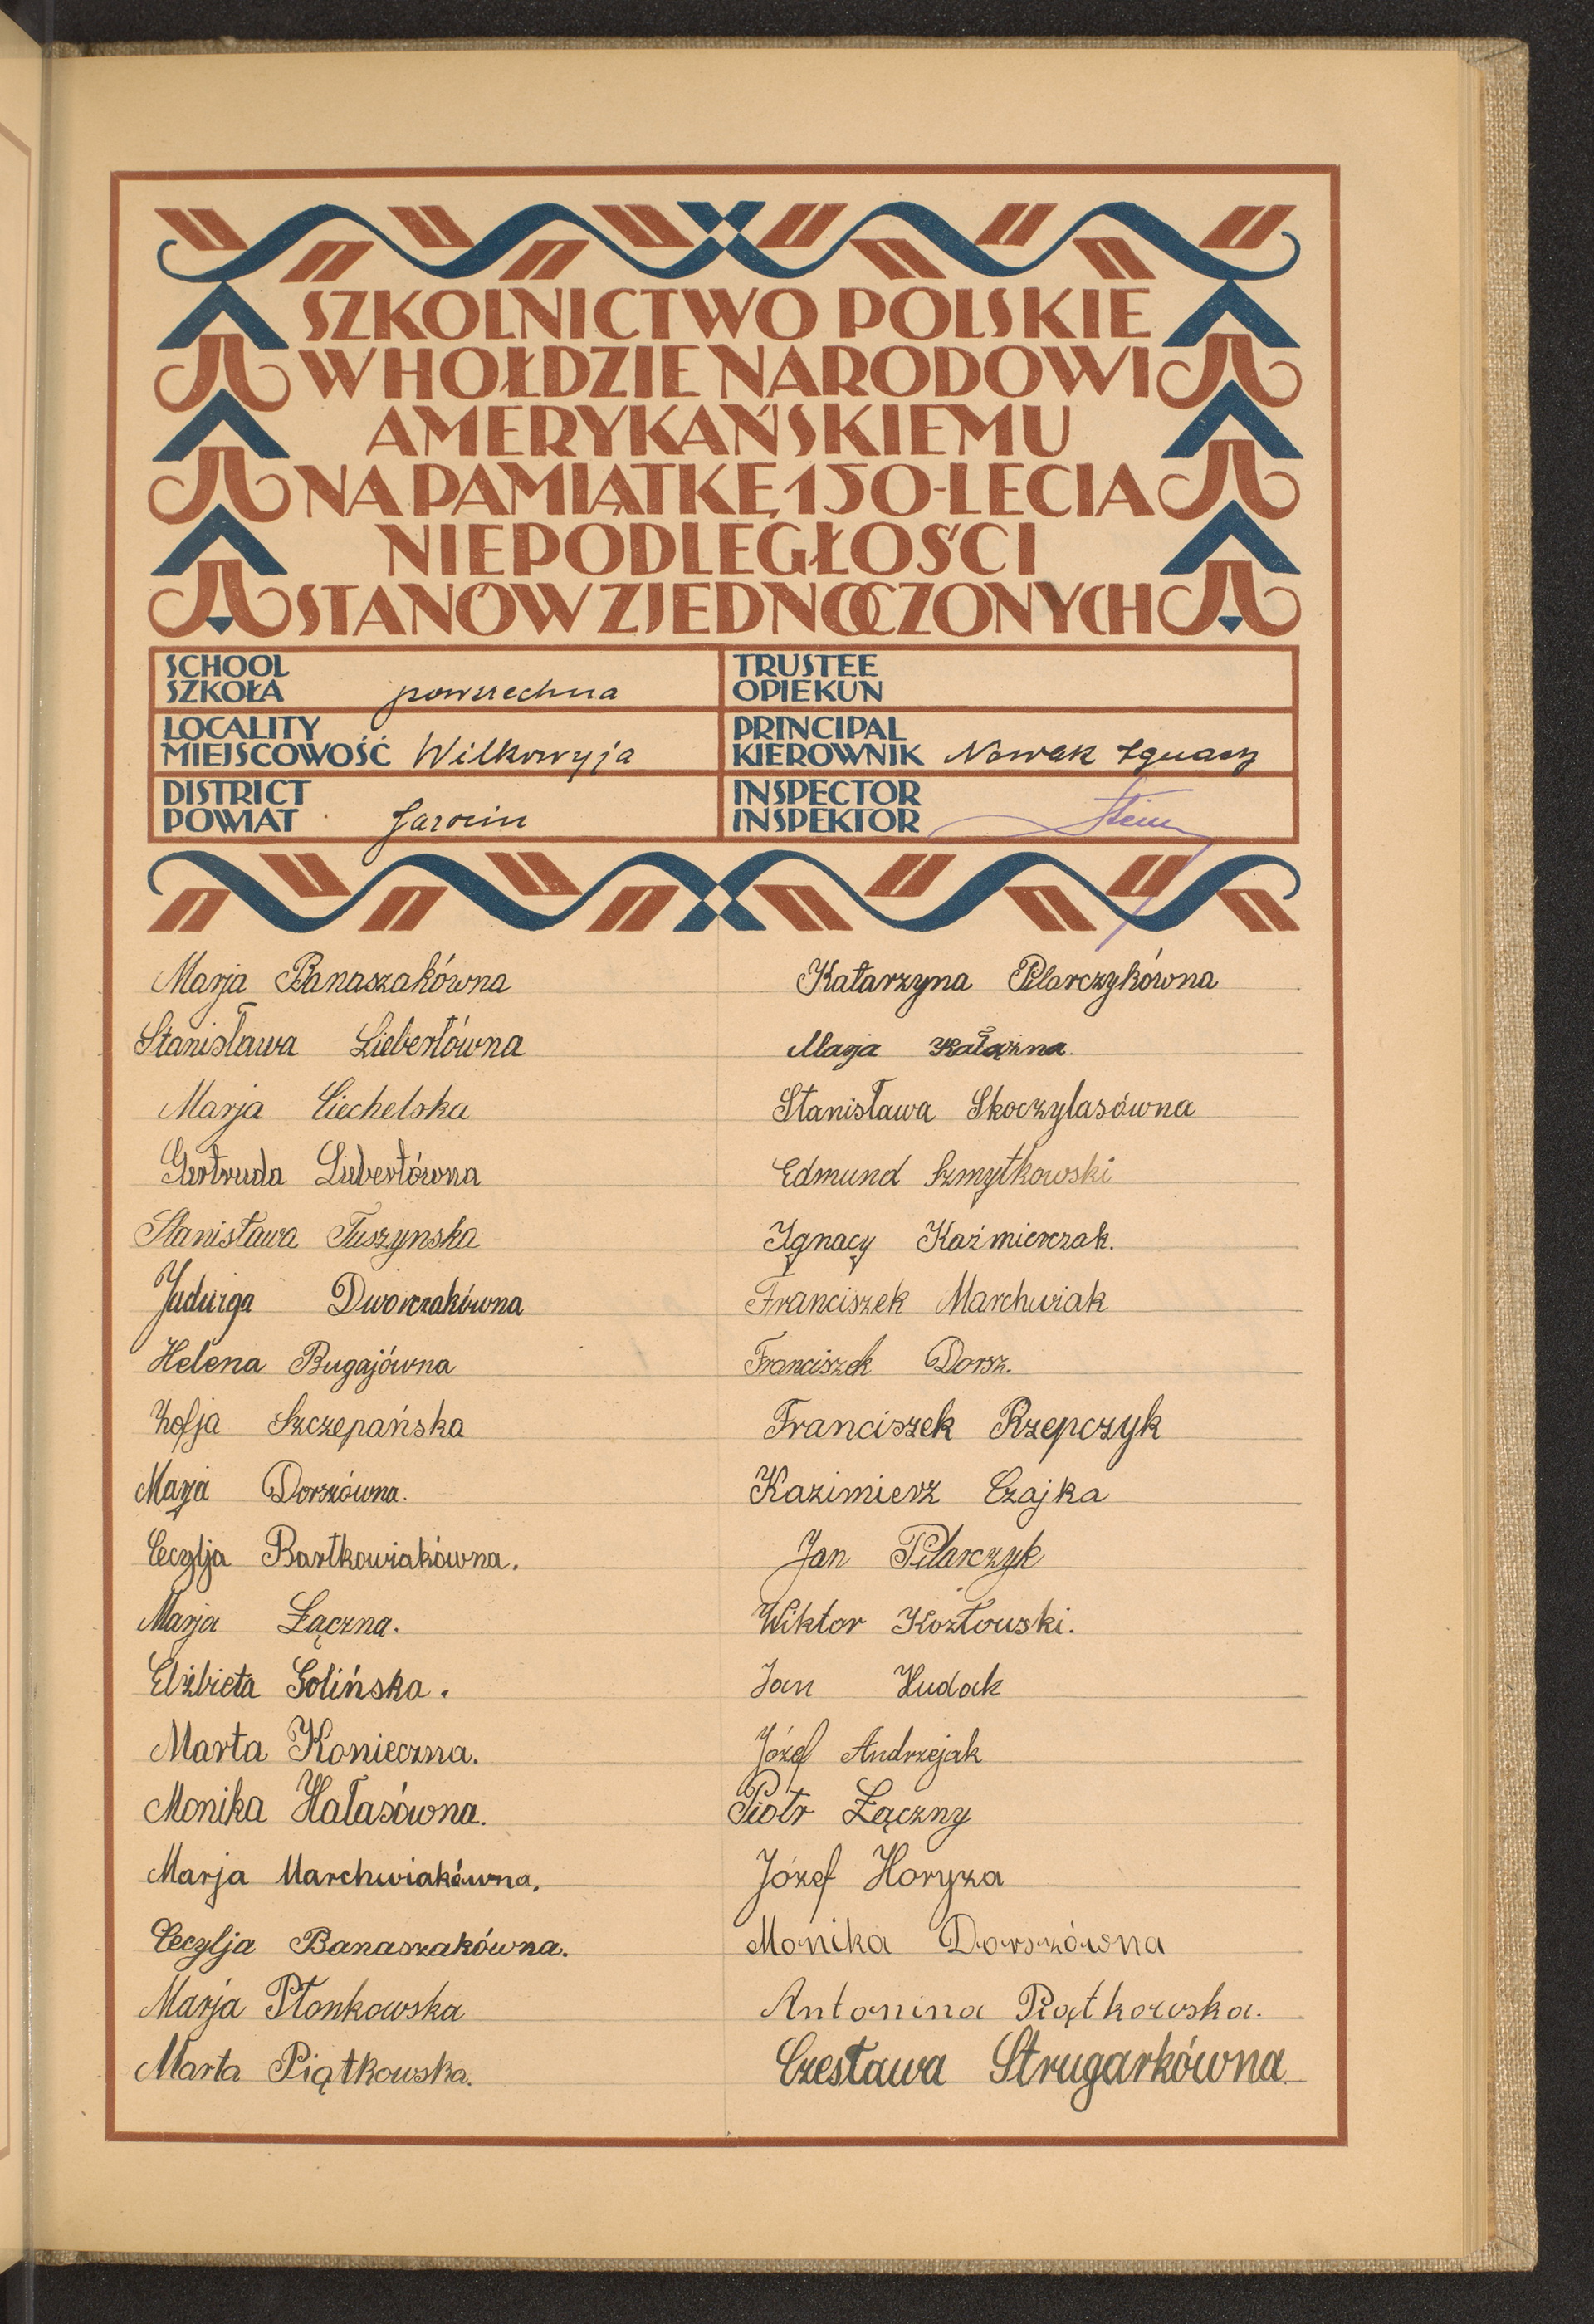 SZKOLNICTWO POLSKIE
W HOŁDZIE NARODOWI
AMERYKAŃSKIEMU
NA PAMIĄTKĘ 150-LECIA
NIEPODLEGŁOŚCI
STANÓW ZJEDNOCZONYCH
SCHOOL
SZKOŁA powszechna
TRUSTEE
OPIEKUN
LOCALITY
MIEJSCOWOŚĆ Wilkowyja
PRINCIPAL
KIEROWNIK Nowak Ignacy
DISTRICT
POWIAT Jarocin
INSPECTOR
INSPEKTOR
Marja Banaszakówna
Stanisława Liebertówna
Marja Ciechelska
Gertruda Liebertówna
Stanisława Tuszynska
Jadwiga Dworczakówna
Helena Bugajówna
Zofja Szczepańska
Marja Dorszówna.
Cecylja Bartkowiakówna.
Marja Łączna.
Elżbieta Golińska.
Marta Konieczna.
Monika Hałasówna.
Marja Marchwiakówna.
Cecylja Banaszakówna.
Marja Płonkowska
Marta Piątkowska.
Katarzyna Pilarczykówna
Marja Kałążna.
Stanisława Skoczylasówna
Edmund Szmytkowski
Ignacy Kaźmierczak.
Franciszek Marchwiak
Franciszek Dorsz.
Franciszek Rzepczyk
Kazimierz Czajka
Jan Pilarczyk
Wiktor Kozłowski.
Jan Hudak
Józef Andrzejak
Piotr Łączny
Józef Horyza
Monika Dorszówna
Antonina Rątkowska.
Czesława Strugarkówna